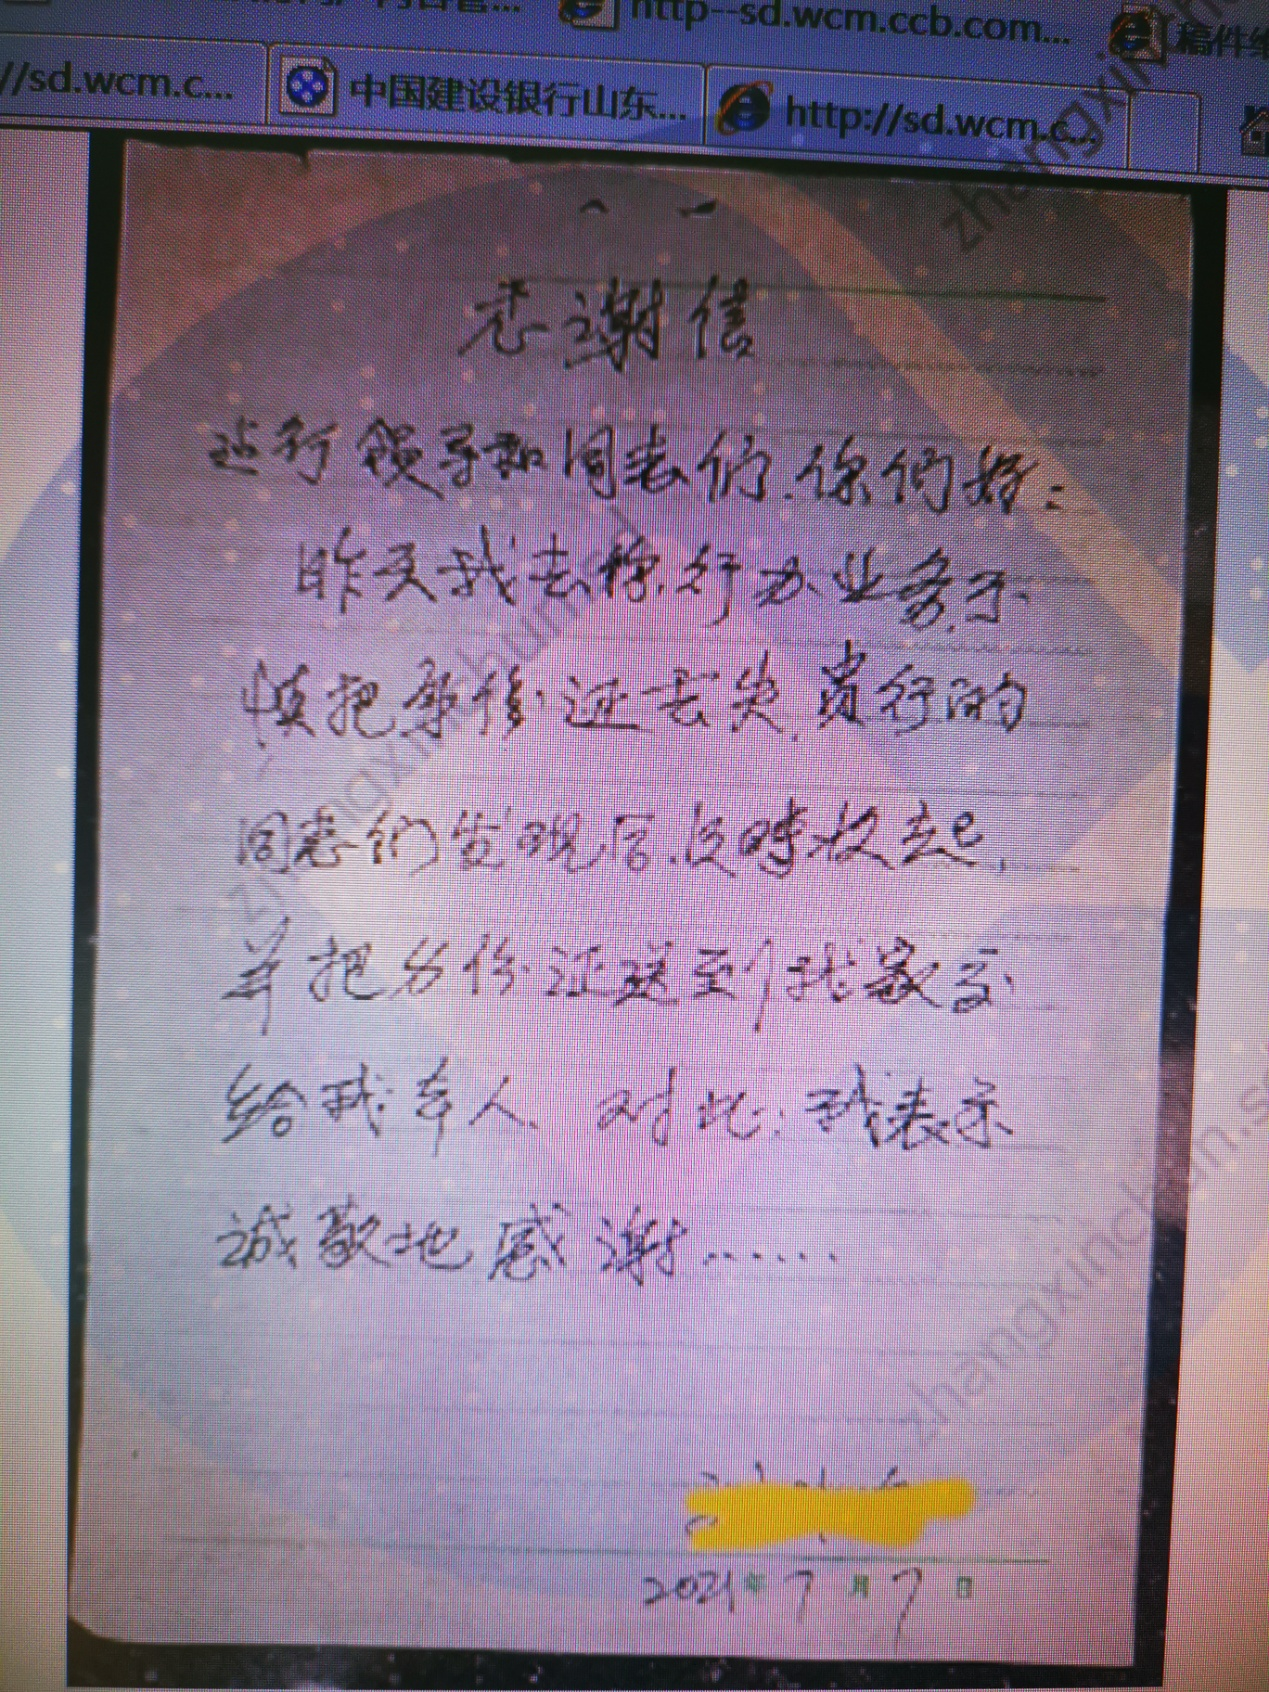 http--sd.wcm.ccb.com...
稿件编
//sd.wcm.c...
中国建设银行山东...
http://sd.wcm.c...
感谢信
建行领导和同志们.你们好:
昨天我去你行办业务.不
慎把身份证丢失,贵行的
同志们发现后.及時收起,
并把身份证送到我家交
给我本人. 对此:我表示
誠敬地感谢......
2021年7月7日
zhangxinchun.s